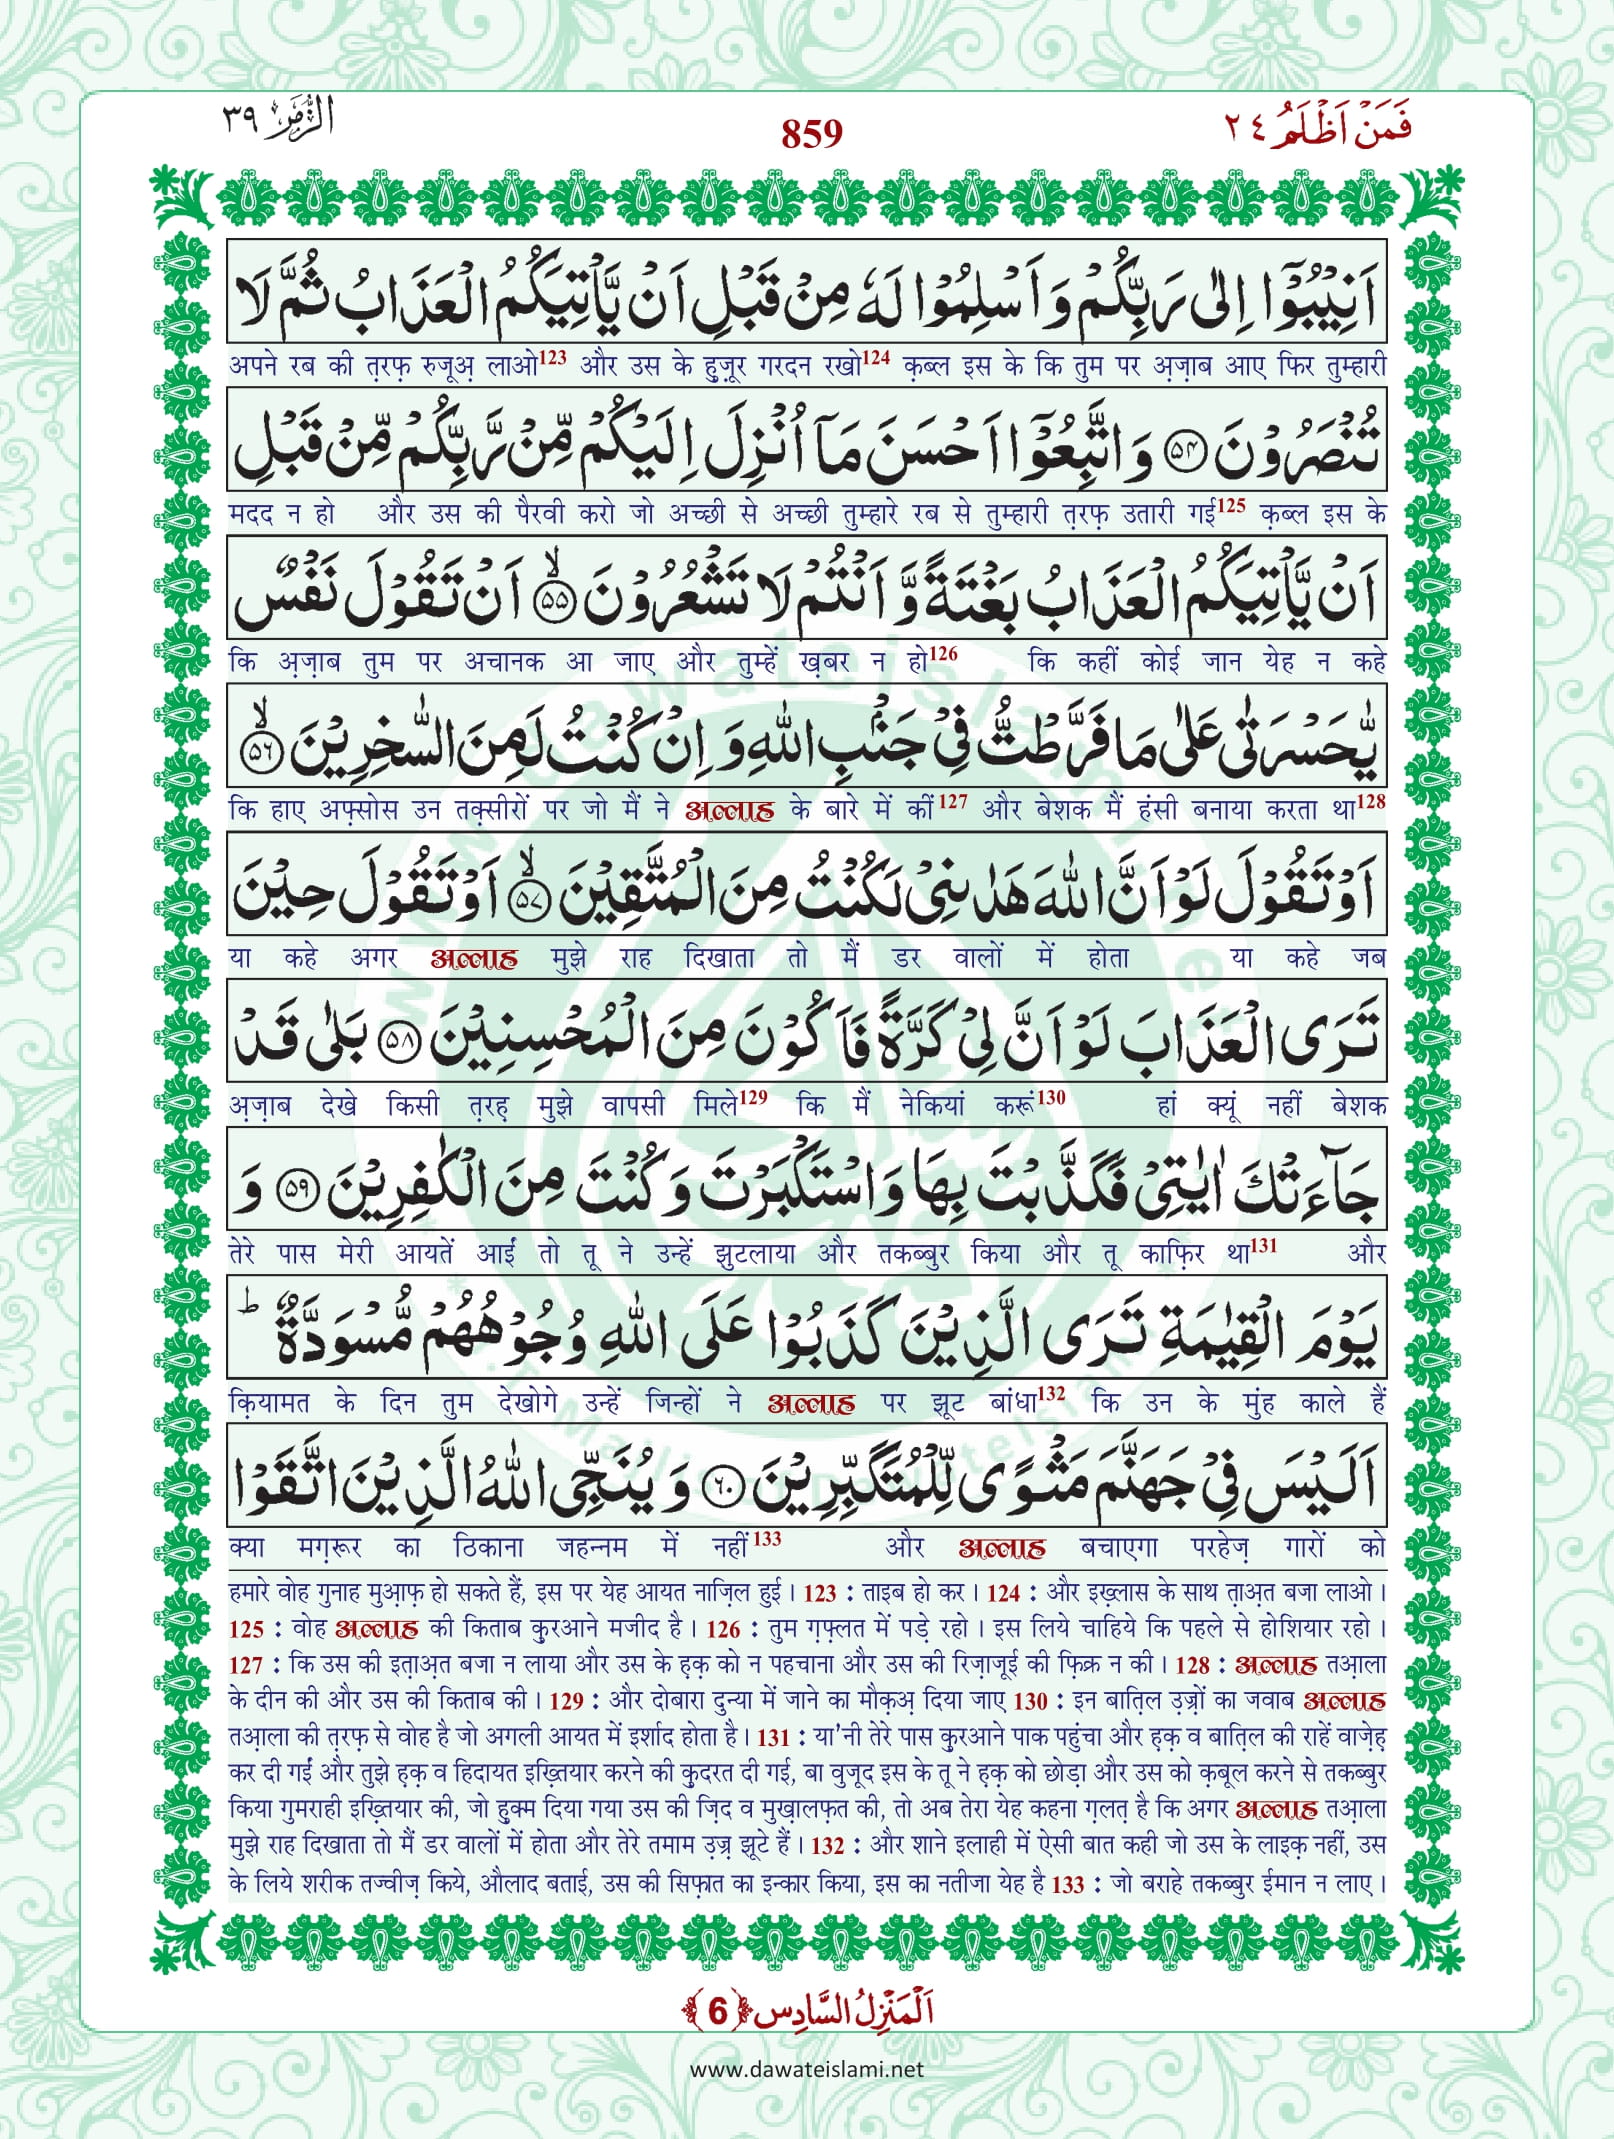 فَمَنْ اَظْلَمُ ٢٤
859
الزُّمَر ٣٩
اَنِیْبُوْۤا اِلٰى رَبِّكُمْ وَ اَسْلِمُوْا لَهٗ مِنْ قَبْلِ اَنْ یَّاْتِیَكُمُ الْعَذَابُ ثُمَّ لَا
अपने रब की त़रफ़ रुजूअ़ लाओ123 और उस के हु़ज़ूर गरदन रखो124 क़ब्ल इस के कि तुम पर अ़ज़ाब आए फिर तुम्हारी
تُنْصَرُوْنَ ﴿۵۴﴾ وَ اتَّبِعُوْۤا اَحْسَنَ مَاۤ اُنْزِلَ اِلَیْكُمْ مِّنْ رَّبِّكُمْ مِّنْ قَبْلِ
मदद न हो और उस की पैरवी करो जो अच्छी से अच्छी तुम्हारे रब से तुम्हारी त़रफ़ उतारी गई125 क़ब्ल इस के
اَنْ یَّاْتِیَكُمُ الْعَذَابُ بَغْتَةً وَّ اَنْتُمْ لَا تَشْعُرُوْنَ ﴿ۙ۵۵﴾ اَنْ تَقُوْلَ نَفْسٌ
कि अ़ज़ाब तुम पर अचानक आ जाए और तुम्हें ख़बर न हो126 कि कहीं कोई जान येह न कहे
یّٰحَسْرَتٰى عَلٰى مَا فَرَّطْتُّ فِیْ جَنْۢبِ اللّٰهِ وَ اِنْ كُنْتُ لَمِنَ السّٰخِرِیْنَ ﴿ۙ۵۶﴾
कि हाए अफ़्सोस उन तक़्सीरों पर जो मैं ने अल्लाह के बारे में कीं127 और बेशक मैं हंसी बनाया करता था128
اَوْ تَقُوْلَ لَوْ اَنَّ اللّٰهَ هَدٰىنِیْ لَكُنْتُ مِنَ الْمُتَّقِیْنَ ﴿ۙ۵۷﴾ اَوْ تَقُوْلَ حِیْنَ
या कहे अगर अल्लाह मुझे राह दिखाता तो मैं डर वालों में होता या कहे जब
تَرَى الْعَذَابَ لَوْ اَنَّ لِیْ كَرَّةً فَاَكُوْنَ مِنَ الْمُحْسِنِیْنَ ﴿۵۸﴾ بَلٰى قَدْ
अ़ज़ाब देखे किसी त़रह़ मुझे वापसी मिले129 कि मैं नेकियां करूं130 हां क्यूं नहीं बेशक
جَآءَتْكَ اٰیٰتِیْ فَكَذَّبْتَ بِهَا وَ اسْتَكْبَرْتَ وَ كُنْتَ مِنَ الْكٰفِرِیْنَ ﴿۵۹﴾ وَ
तेरे पास मेरी आयतें आईं तो तू ने उन्हें झुटलाया और तकब्बुर किया और तू काफ़िर था131 और
یَوْمَ الْقِیٰمَةِ تَرَى الَّذِیْنَ كَذَبُوْا عَلَى اللّٰهِ وُجُوْهُهُمْ مُّسْوَدَّةٌ ؕ
क़ियामत के दिन तुम देखोगे उन्हें जिन्हों ने अल्लाह पर झूट बांधा132 कि उन के मुंह काले हैं
اَلَیْسَ فِیْ جَهَنَّمَ مَثْوًى لِّلْمُتَكَبِّرِیْنَ ﴿۶۰﴾ وَ یُنَجِّی اللّٰهُ الَّذِیْنَ اتَّقَوْا
क्या मग़रूर का ठिकाना जहन्नम में नहीं133 और अल्लाह बचाएगा परहेज़ गारों को
हमारे वोह गुनाह मुआ़फ़ हो सकते हैं, इस पर येह आयत नाज़िल हुई। 123 : ताइब हो कर। 124 : और इख़्लास के साथ त़ाअ़त बजा लाओ।
125 : वोह अल्लाह की किताब क़ुरआने मजीद है। 126 : तुम ग़फ़्लत में पड़े रहो। इस लिये चाहिये कि पहले से होशियार रहो।
127 : कि उस की इत़ाअ़त बजा न लाया और उस के ह़क़ को न पहचाना और उस की रिज़ाजूई की फ़िक्र न की। 128 : अल्लाह तआ़ला
के दीन की और उस की किताब की। 129 : और दोबारा दुन्या में जाने का मौक़अ़ दिया जाए 130 : इन बात़िल उज़्रों का जवाब अल्लाह
तआ़ला की त़रफ़ से वोह है जो अगली आयत में इर्शाद होता है। 131 : या'नी तेरे पास क़ुरआने पाक पहुंचा और ह़क़ व बात़िल की राहें वाज़ेह़
कर दी गईं और तुझे ह़क़ व हिदायत इख़्तियार करने की क़ुदरत दी गई, बा वुजूद इस के तू ने ह़क़ को छोड़ा और उस को क़बूल करने से तकब्बुर
किया गुमराही इख़्तियार की, जो हु़क्म दिया गया उस की ज़िद व मुख़ालफ़त की, तो अब तेरा येह कहना ग़लत़ है कि अगर अल्लाह तआ़ला
मुझे राह दिखाता तो मैं डर वालों में होता और तेरे तमाम उ़ज़्र झूटे हैं। 132 : और शाने इलाही में ऐसी बात कही जो उस के लाइक़ नहीं, उस
के लिये शरीक तज्वीज़ किये, औलाद बताई, उस की सिफ़ात का इन्कार किया, इस का नतीजा येह है 133 : जो बराहे तकब्बुर ईमान न लाए।
اَلْمَنْزِلُ السَّادِس ﴿6﴾
www.dawateislami.net